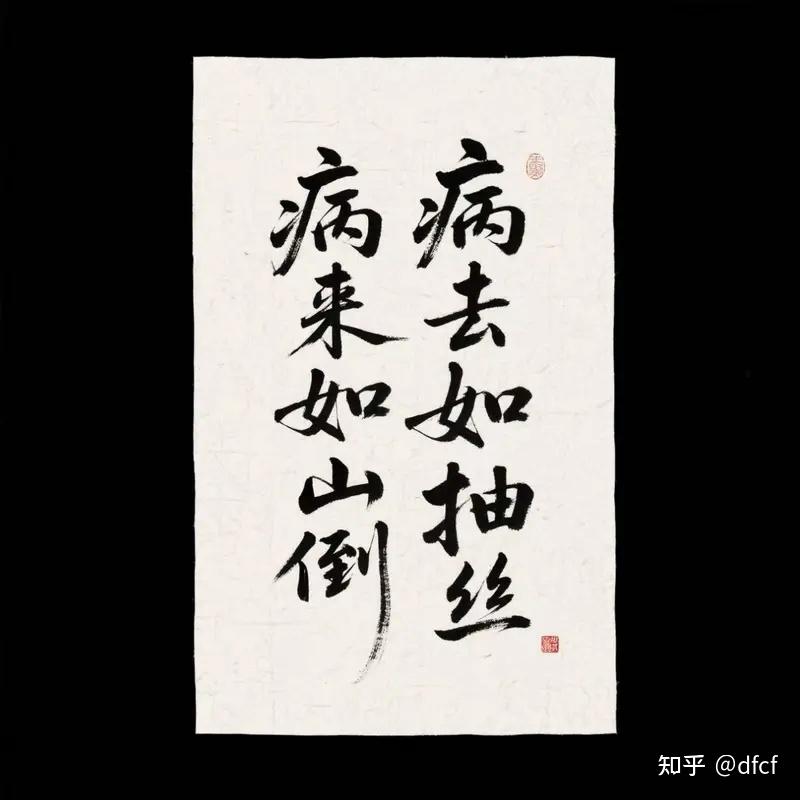 病去如抽丝
病来如山倒
知乎 @dfcf